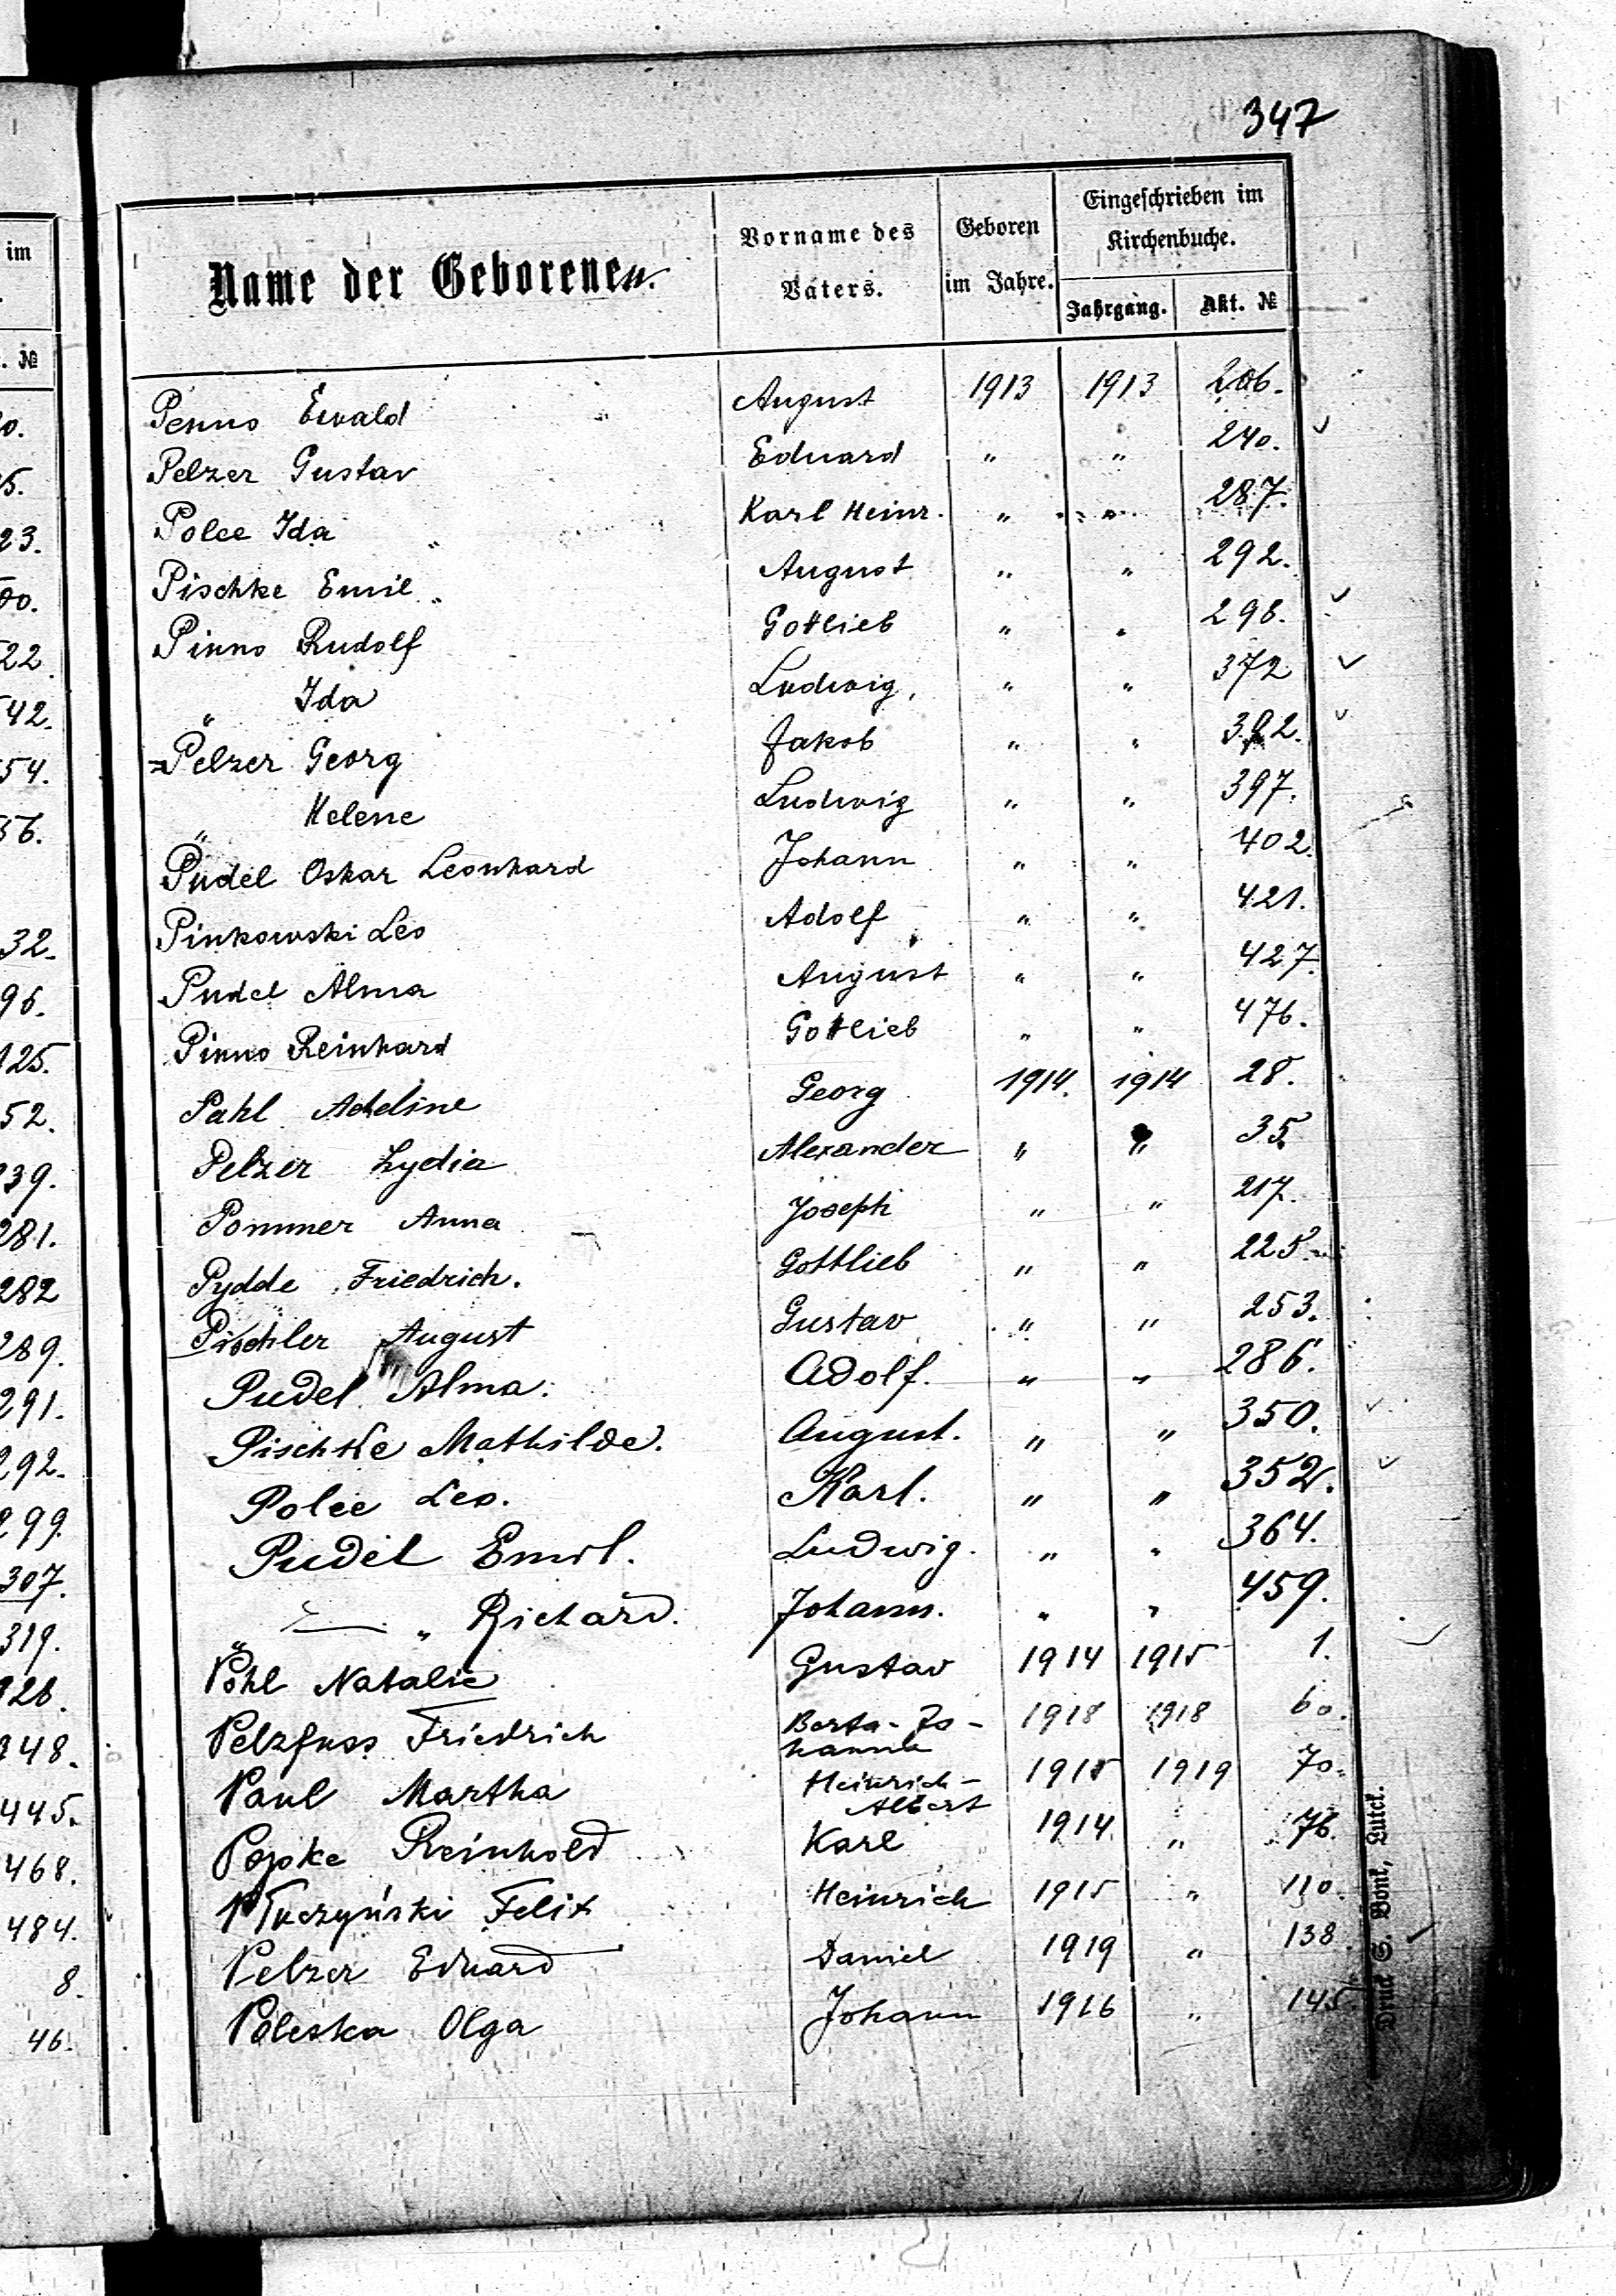 347
im
. №
Name der Geborenen.
Vorname des Vaters.
Geboren im Jahre.
Eingeschrieben im Kirchenbuche.
Jahrgang. Akt. №
Penno Ewald August 1913 1913 206.
Pelzer Gustav Eduard " " 240.
Polee Ida Karl Heinr. " " 287.
Pischke Emil August " " 292.
Pinno Rudolf Gottlieb " " 296.
" Ida Ludwig, " " 372
Pelzer Georg Jakob " " 392.
" Helene Ludwig " " 397.
Pudel Oskar Leonhard Johann " " 402.
Pinkowski Leo Adolf " " 421.
Pudel Alma August " " 427.
Pinno Reinhard Gottlieb " " 476.
Pahl Adeline Georg 1914. 1914 28.
Pelzer Lydia Alexander " " 35.
Pommer Anna Joseph " " 217.
Pydde Friedrich. Gottlieb " " 225.
Pischler August Gustav " " 253.
Pudel Alma. Adolf. " " 286.
Pischke Mathilde. August. " " 350.
Polee Leo. Karl. " " 352.
Pudel Emil. Ludwig. " " 364.
" Richard. Johann. " " 459.
Pöhl Natalie Gustav 1914 1915 1.
Pelzfuss Friedrich Berta-Jo-
hanna 1918 1918 60.
Paul Martha Heinrich-
Albert 1915 1919 70.
Popke Reinhold Karl 1914 " 76.
Ptuczyński Felix Heinrich 1915 " 110.
Pelzer Eduard Daniel 1919 " 138.
Paleska Olga Johann 1916 " 145.
Druck S. Bonk, Lutck.
0.
5.
23.
00.
22.
42.
54.
56.
32.
96.
125.
52.
239.
281.
282
289.
291.
292.
299.
307.
319.
328.
348.
445.
468.
484.
8.
46.